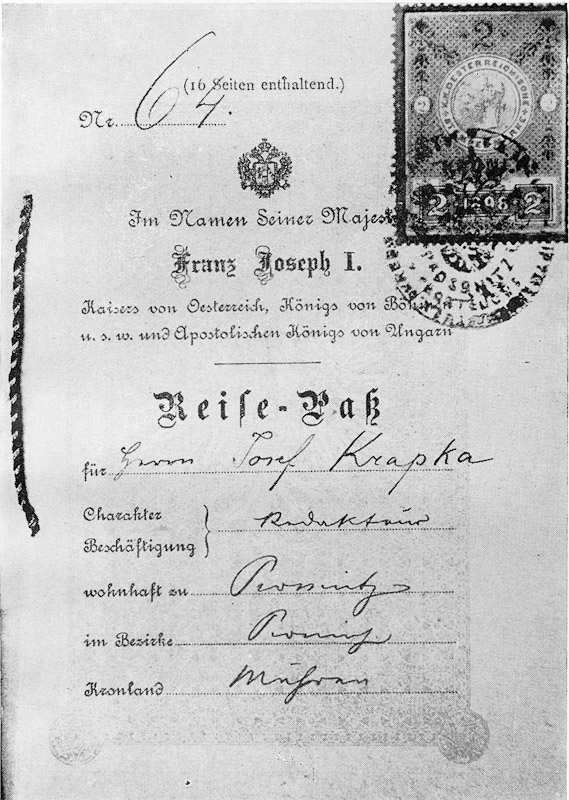 (16 Seiten enthaltend.)
Nr. 64.
2
2 1898 2
Im Namen Seiner Majest
Franz Joseph I.
Kaisers von Oesterreich, Königs von Böhm
u. s. w. und Apostolischen Königs von Ungarn
Reise-Paß
für Herrn Josef Krapka
Charakter
Beschäftigung } Redakteur
wohnhaft zu Prossnitz
im Bezirke Prossnitz
Kronland Mähren